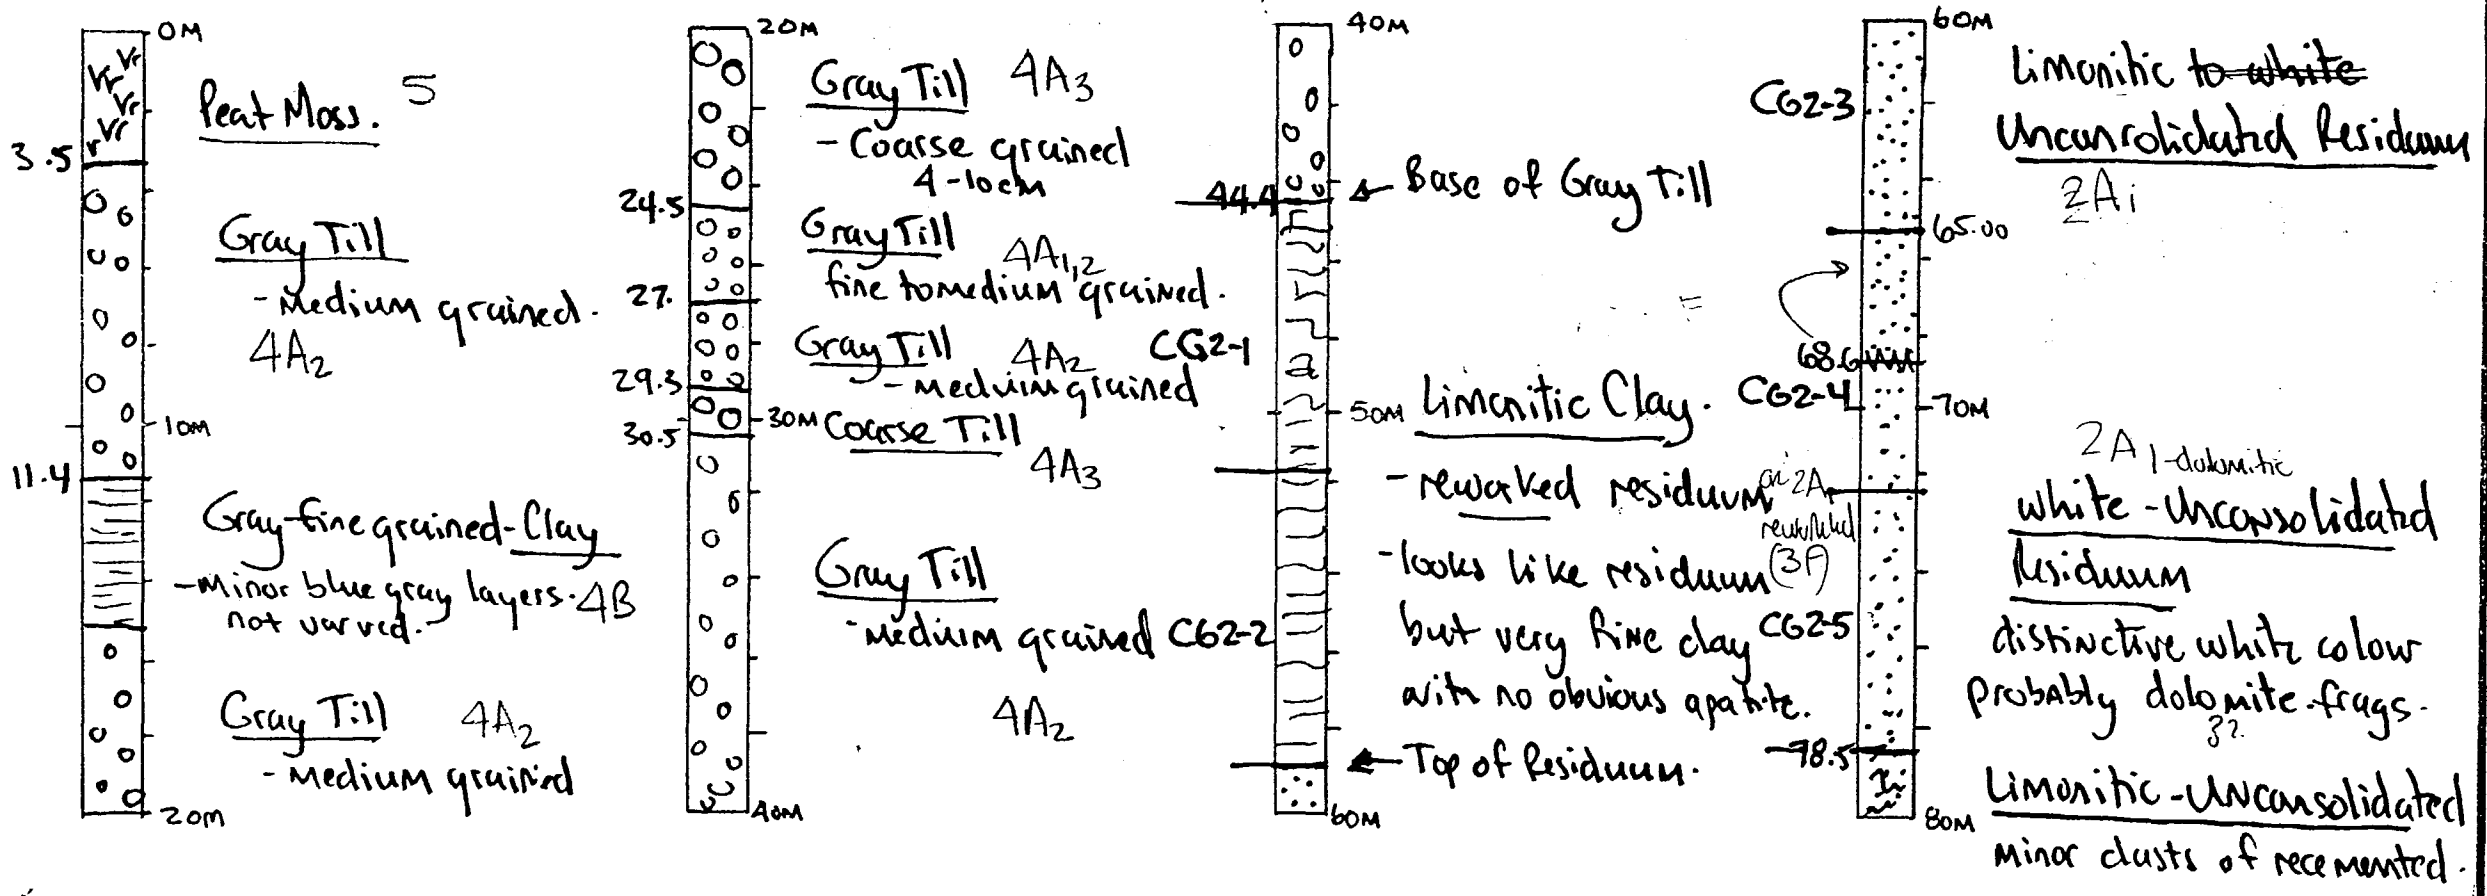 0M
Peat Moss. 5
3.5
Gray Till
- Medium grained.
4A2
10M
11.4
Gray-fine grained-Clay
- Minor blue gray layers. 4B
not varved.
Gray Till 4A2
- Medium grained
20M
20M
Gray Till 4A3
- Coarse grained
4-10cm
24.5
Gray Till 4A1,2
fine to medium grained.
27.
Gray Till 4A2
- medium grained
29.3
30M
Coarse Till
30.5
4A3
Gray Till
- Medium grained
4A2
40M
40M
44.4
Base of Gray Till
CG2-1
50M
Limonitic Clay.
- reworked residuum or 2A
reworked
(3A)
- looks like residuum
but very fine clay
with no obvious apatite.
CG2-2
Top of Residuum.
60M
60M
Limonitic to white
Unconsolidated Residuum
2A1
CG2-3
65.00
68.6
CG2-4
70M
2A1-dolomitic
White - Unconsolidated
Residuum
distinctive white colour
probably dolomite frags.
3?
CG2-5
78.5
Limonitic - Unconsolidated
minor clasts of recemented.
80M